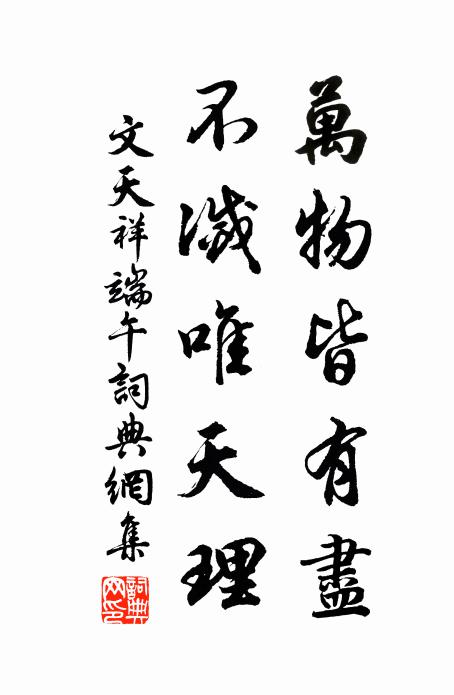 萬物皆有盡
不滅唯天理
文天祥端午詞典網集
詞典網印